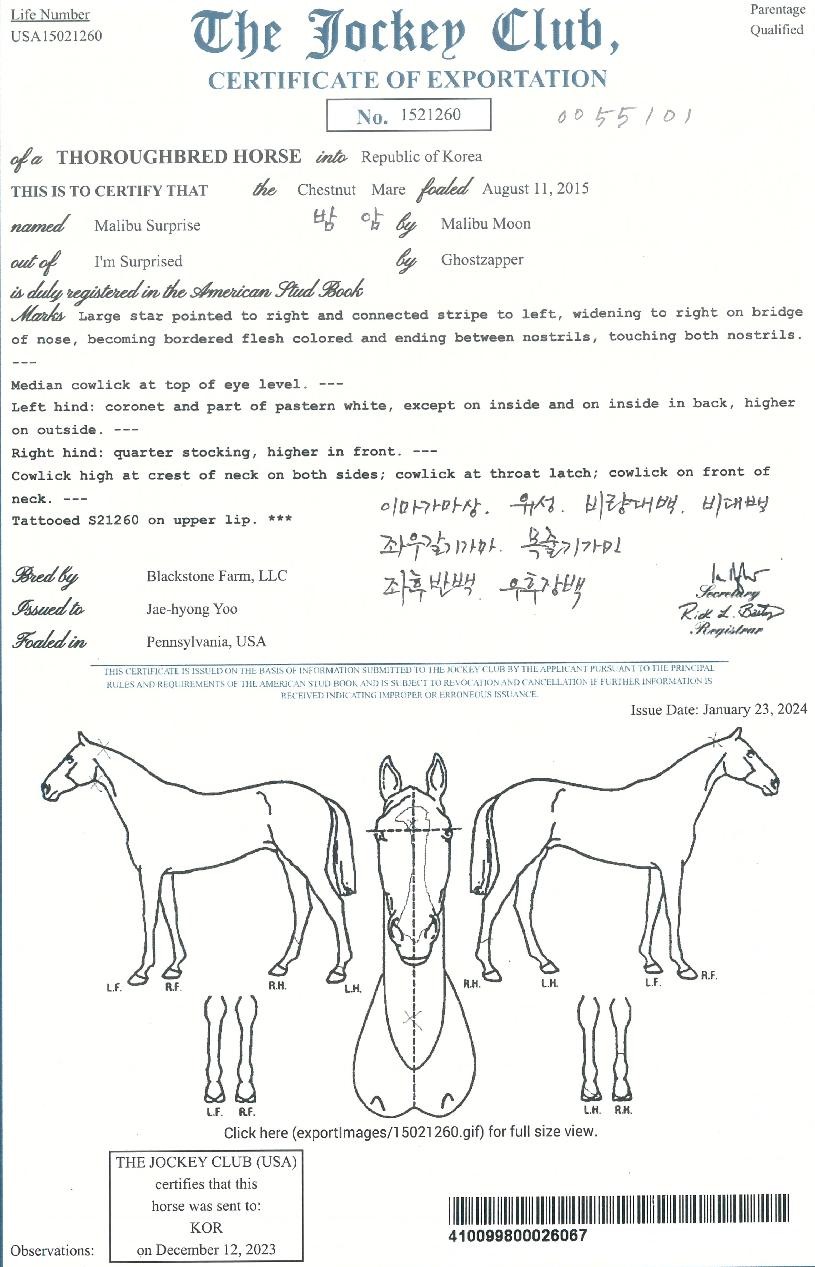 Life Number
USA15021260
The Jockey Club,
Parentage
Qualified
CERTIFICATE OF EXPORTATION
No. 1521260
0055101
of a THOROUGHBRED HORSE into Republic of Korea
THIS IS TO CERTIFY THAT the Chestnut Mare foaled August 11, 2015
named Malibu Surprise 밤 암 by Malibu Moon
out of I'm Surprised by Ghostzapper
is duly registered in the American Stud Book
Marks Large star pointed to right and connected stripe to left, widening to right on bridge
of nose, becoming bordered flesh colored and ending between nostrils, touching both nostrils.
---
Median cowlick at top of eye level. ---
Left hind: coronet and part of pastern white, except on inside and on inside in back, higher
on outside. ---
Right hind: quarter stocking, higher in front. ---
Cowlick high at crest of neck on both sides; cowlick at throat latch; cowlick on front of
neck. ---
이마가마상. 유성. 비량대백. 비대백
Tattooed S21260 on upper lip. ***
좌우갈기가마. 목줄기가마
Bred by Blackstone Farm, LLC
좌후반백 우후장백
Secretary
Issued to Jae-hyong Yoo
Registrar
Foaled in Pennsylvania, USA
THIS CERTIFICATE IS ISSUED ON THE BASIS OF INFORMATION SUBMITTED TO THE JOCKEY CLUB BY THE APPLICANT PURSUANT TO THE PRINCIPAL
RULES AND REQUIREMENTS OF THE AMERICAN STUD BOOK AND IS SUBJECT TO REVOCATION AND CANCELLATION IF FURTHER INFORMATION IS
RECEIVED INDICATING IMPROPER OR ERRONEOUS ISSUANCE.
Issue Date: January 23, 2024
L.F. R.F. R.H. L.H. R.H. L.H. L.F. R.F.
L.F. R.F. L.H. R.H.
Click here (exportImages/15021260.gif) for full size view.
THE JOCKEY CLUB (USA)
certifies that this
horse was sent to:
KOR
on December 12, 2023
Observations:
410099800026067